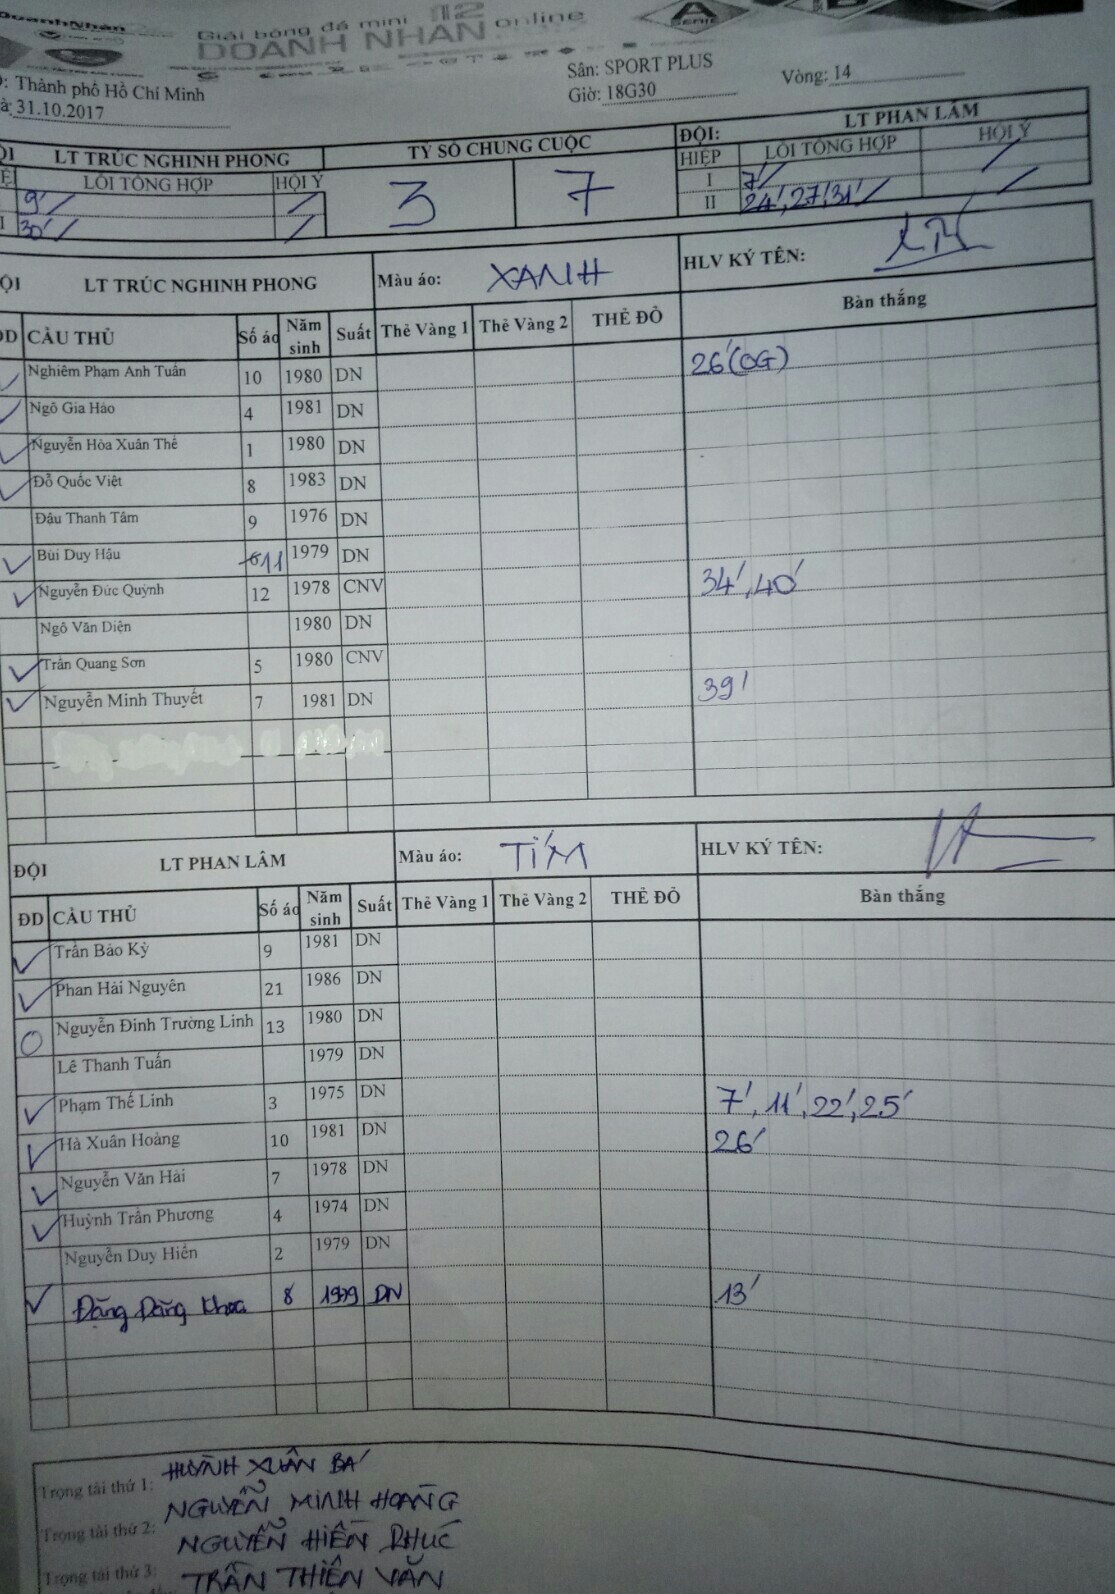 DoanhNhân
Giải bóng đá mini 12
DOANH NHÂN online
A
SERIE
: Thành phố Hồ Chí Minh
à: 31.10.2017
Sân: SPORT PLUS
Giờ: 18G30
Vòng: 14
LT TRÚC NGHINH PHONG
TỶ SỐ CHUNG CUỘC
ĐỘI: LT PHAN LÂM
LỖI TỔNG HỢP HỘI Ý
HIỆP LỖI TỔNG HỢP HỘI Ý
9' /
30' /
3 7
I 7' /
II 24', 27', 31' /
LT TRÚC NGHINH PHONG Màu áo: XANH HLV KÝ TÊN:
CẦU THỦ Số áo Năm sinh Suất Thẻ Vàng 1 Thẻ Vàng 2 THẺ ĐỎ Bàn thắng
Nghiêm Phạm Anh Tuấn 10 1980 DN 26' (OG)
Ngô Gia Hào 4 1981 DN
Nguyễn Hòa Xuân Thế 1 1980 DN
Đỗ Quốc Việt 8 1983 DN
Đậu Thanh Tâm 9 1976 DN
Bùi Duy Hậu 11 1979 DN
Nguyễn Đức Quỳnh 12 1978 CNV 34', 40'
Ngô Văn Diện 1980 DN
Trần Quang Sơn 5 1980 CNV
Nguyễn Minh Thuyết 7 1981 DN 39'
ĐỘI LT PHAN LÂM Màu áo: TÍM HLV KÝ TÊN:
ĐD CẦU THỦ Số áo Năm sinh Suất Thẻ Vàng 1 Thẻ Vàng 2 THẺ ĐỎ Bàn thắng
Trần Bảo Kỳ 9 1981 DN
Phan Hải Nguyên 21 1986 DN
Nguyễn Đình Trường Linh 13 1980 DN
Lê Thanh Tuấn 1979 DN
Phạm Thế Linh 3 1975 DN 7', 11', 22', 25'
Hà Xuân Hoàng 10 1981 DN 26'
Nguyễn Văn Hải 7 1978 DN
Huỳnh Trần Phương 4 1974 DN
Nguyễn Duy Hiền 2 1979 DN
Đặng Đăng Khoa 8 1979 DN 13'
Trọng tài thứ 1: HUỲNH XUÂN BÁ
Trọng tài thứ 2: NGUYỄN MINH HOÀNG
Trọng tài thứ 3: NGUYỄN HIỀN PHÚC
TRẦN THIÊN VĂN